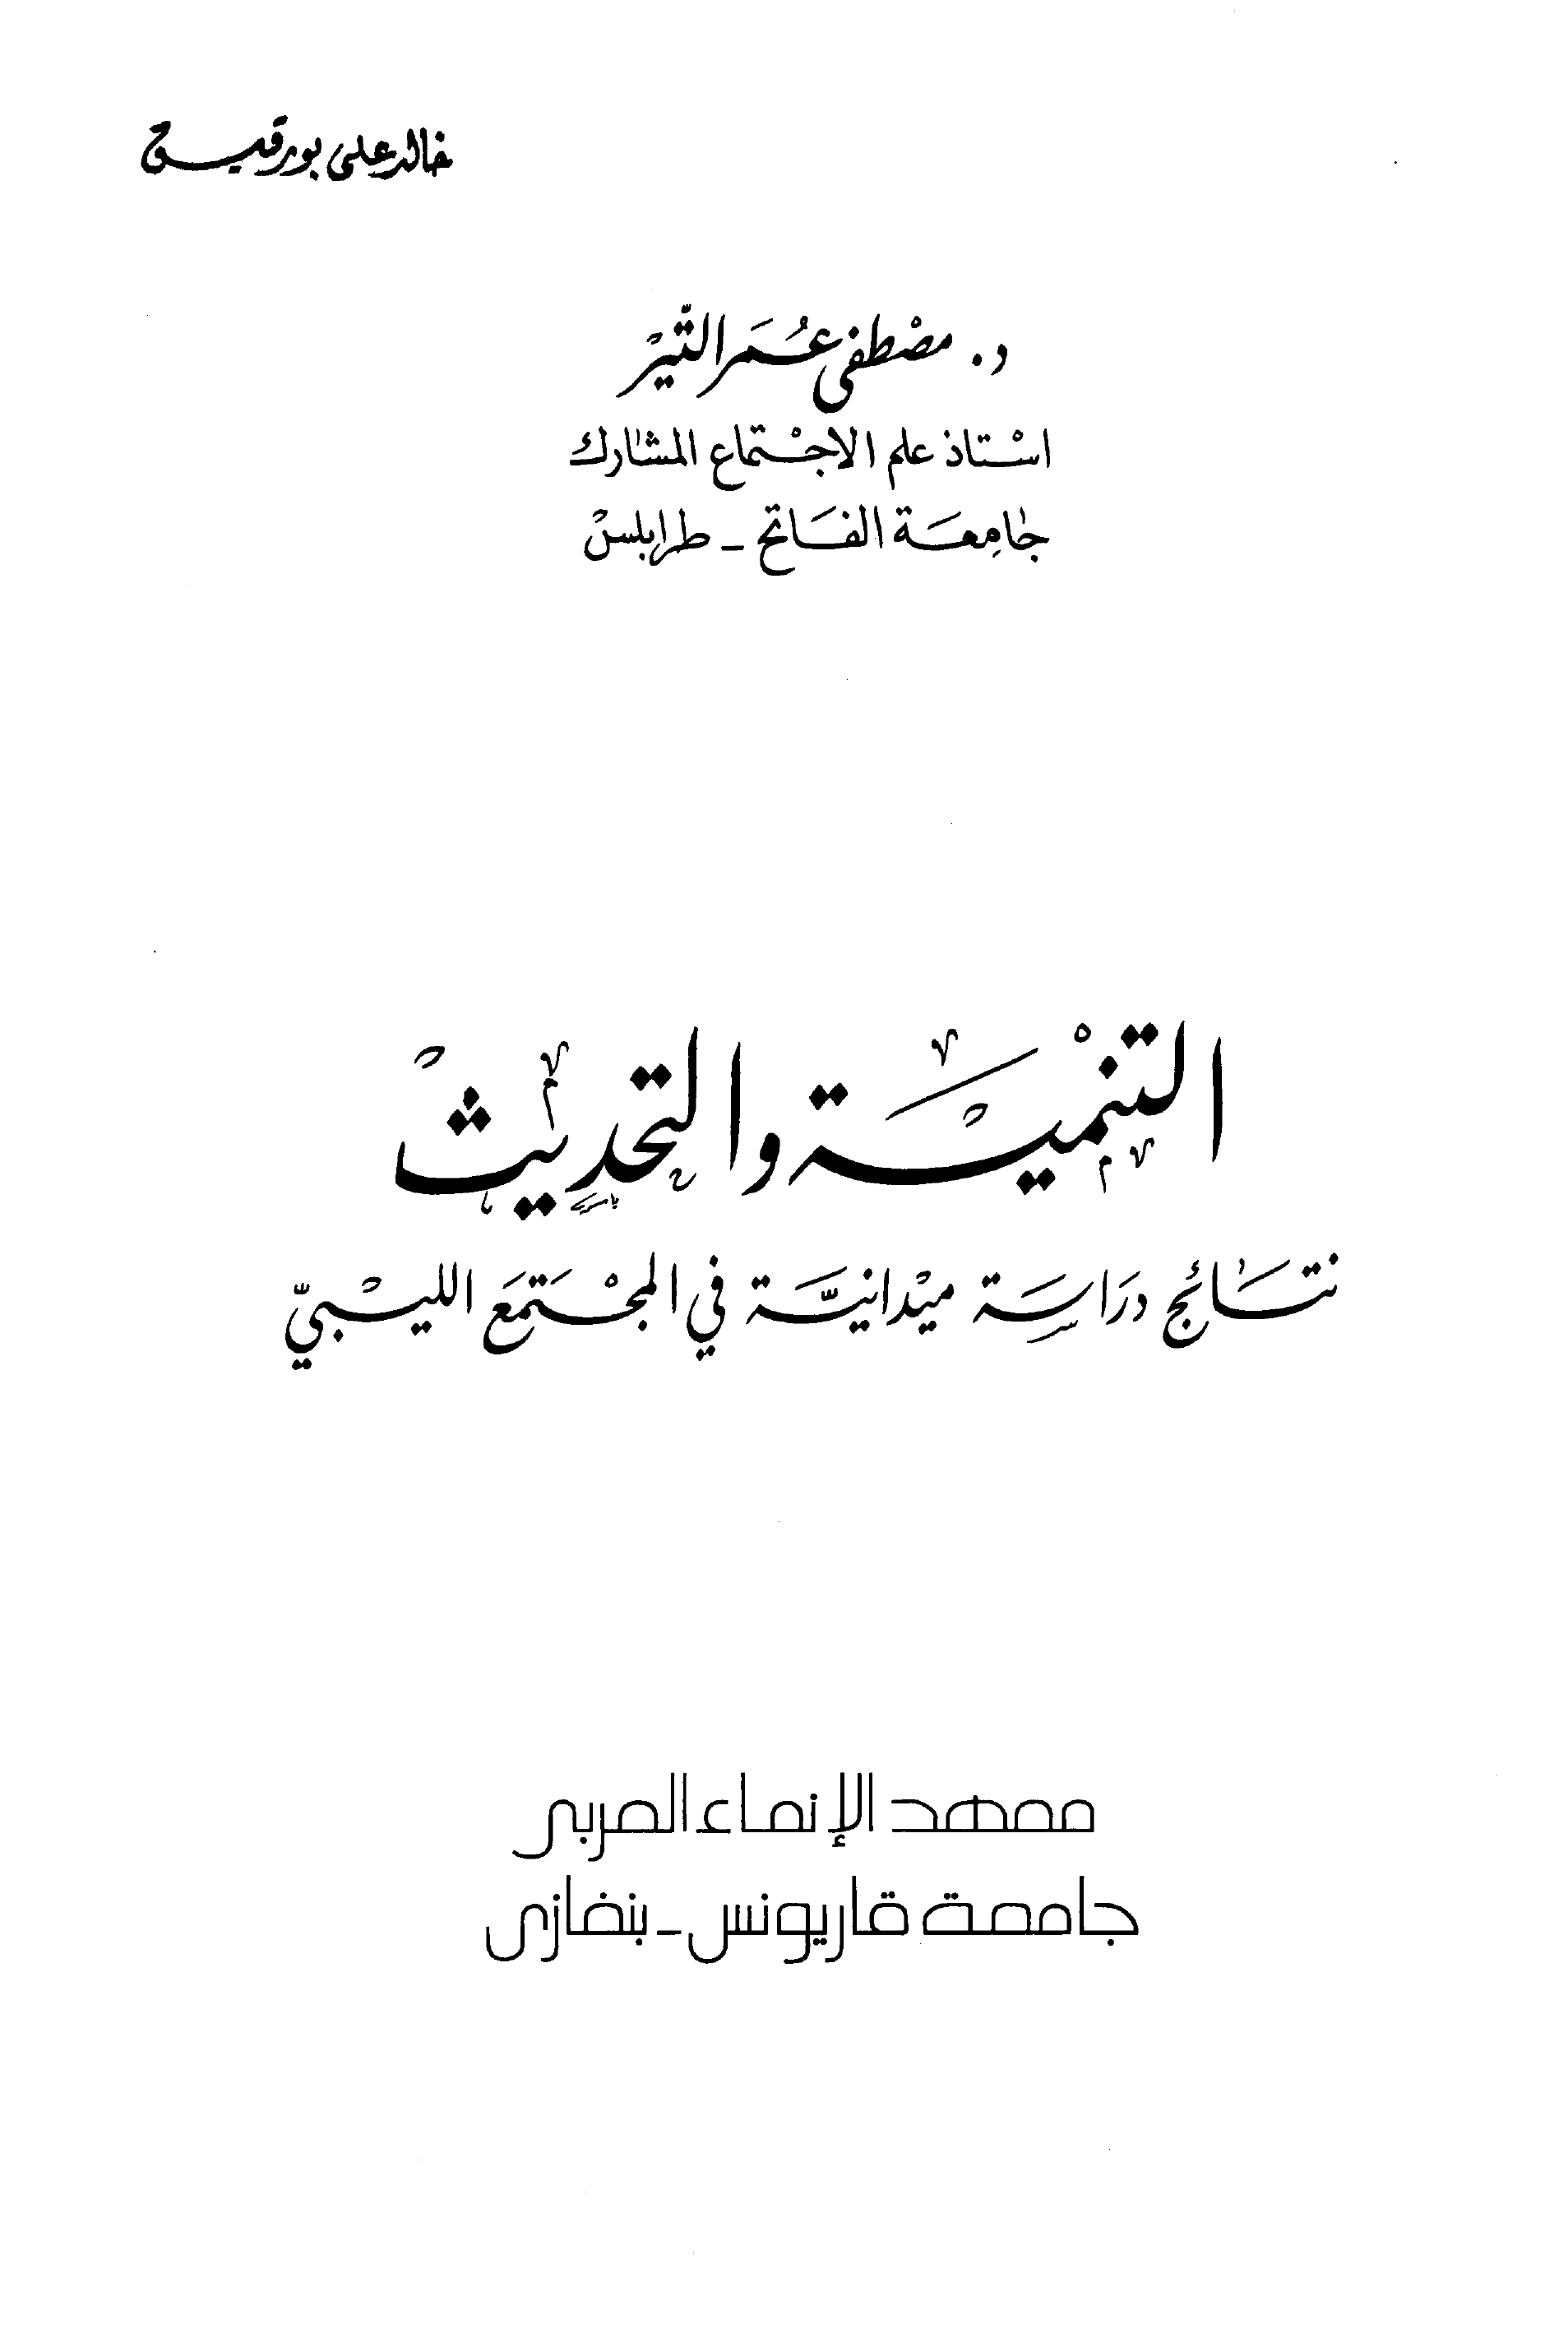 خالد علي بورقيق
د. مصْطفى عُمَر التّيرْ
اسْتاذ علم الاجْتماع المشارك
جامِعَة الفَاتح - طرابلسْ
التنْميَة والتحديثْ
نتَائج درَاسِة ميْدانيّة في المجْتمَع الليْبيّ
معهد الإنماء العربي
جامعة قاريونس - بنغازي